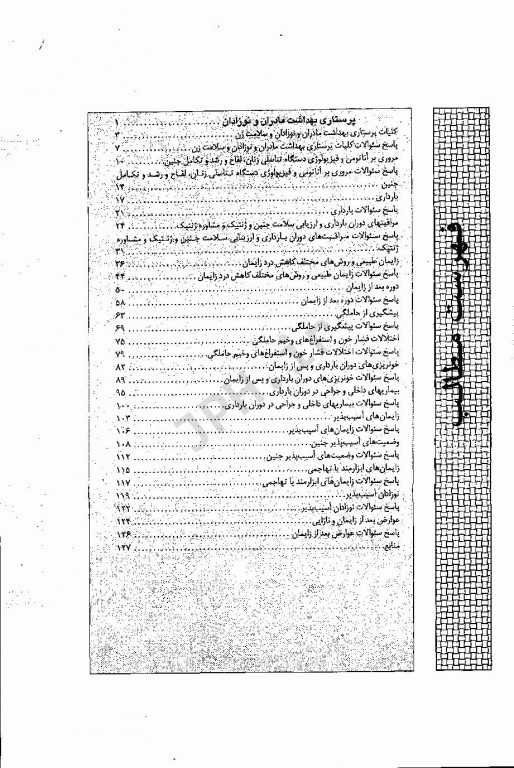 فهرست مطالب
پرستاری بهداشت مادران و نوزادان ۱
کلیات پرستاری بهداشت مادران و نوزادان و سلامت زن ۳
پاسخ سئوالات کلیات پرستاری بهداشت مادران و نوزادان و سلامت زن ۷
مروری بر آناتومی و فیزیولوژی دستگاه تناسلی زنان، لقاح و رشد و تکامل جنین ۱۰
پاسخ سئوالات مروری بر آناتومی و فیزیولوژی دستگاه تناسلی زنان، لقاح و رشد و تکامل
جنین ۱۴
بارداری ۱۷
پاسخ سئوالات بارداری ۲۱
مراقبتهای دوران بارداری و ارزیابی سلامت جنین و ژنتیک و مشاوره ژنتیک ۲۴
پاسخ سئوالات مراقبت‌های دوران بارداری و ارزیابی سلامت جنین و ژنتیک و مشاوره
ژنتیک ۳۱
زایمان طبیعی و روش‌های مختلف کاهش درد زایمان ۳۶
پاسخ سئوالات زایمان طبیعی و روش‌های مختلف کاهش درد زایمان ۴۴
دوره بعد از زایمان ۵۰
پاسخ سئوالات دوره بعد از زایمان ۵۸
پیشگیری از حاملگی ۶۳
پاسخ سئوالات پیشگیری از حاملگی ۶۹
اختلالات فشار خون و استفراغ‌های وخیم حاملگی ۷۵
پاسخ سئوالات اختلالات فشار خون و استفراغ‌های وخیم حاملگی ۷۹
خونریزی‌های دوران بارداری و پس از زایمان ۸۲
پاسخ سئوالات خونریزی‌های دوران بارداری و پس از زایمان ۸۹
بیماریهای داخلی و جراحی در دوران بارداری ۹۵
پاسخ سئوالات بیماریهای داخلی و جراحی در دوران بارداری ۱۰۰
زایمان‌های آسیب‌پذیر ۱۰۳
پاسخ سئوالات زایمان‌های آسیب‌پذیر ۱۰۶
وضعیت‌های آسیب‌پذیر جنین ۱۰۸
پاسخ سئوالات وضعیت‌های آسیب‌پذیر جنین ۱۱۲
زایمان‌های ابزارمند یا تهاجمی ۱۱۵
پاسخ سئوالات زایمان‌های ابزارمند یا تهاجمی ۱۱۷
نوزادان آسیب‌پذیر ۱۱۹
پاسخ سئوالات نوزادان آسیب‌پذیر ۱۲۲
عوارض بعد از زایمان و نازایی ۱۲۴
پاسخ سئوالات عوارض بعد از زایمان ۱۲۶
منابع ۱۲۷